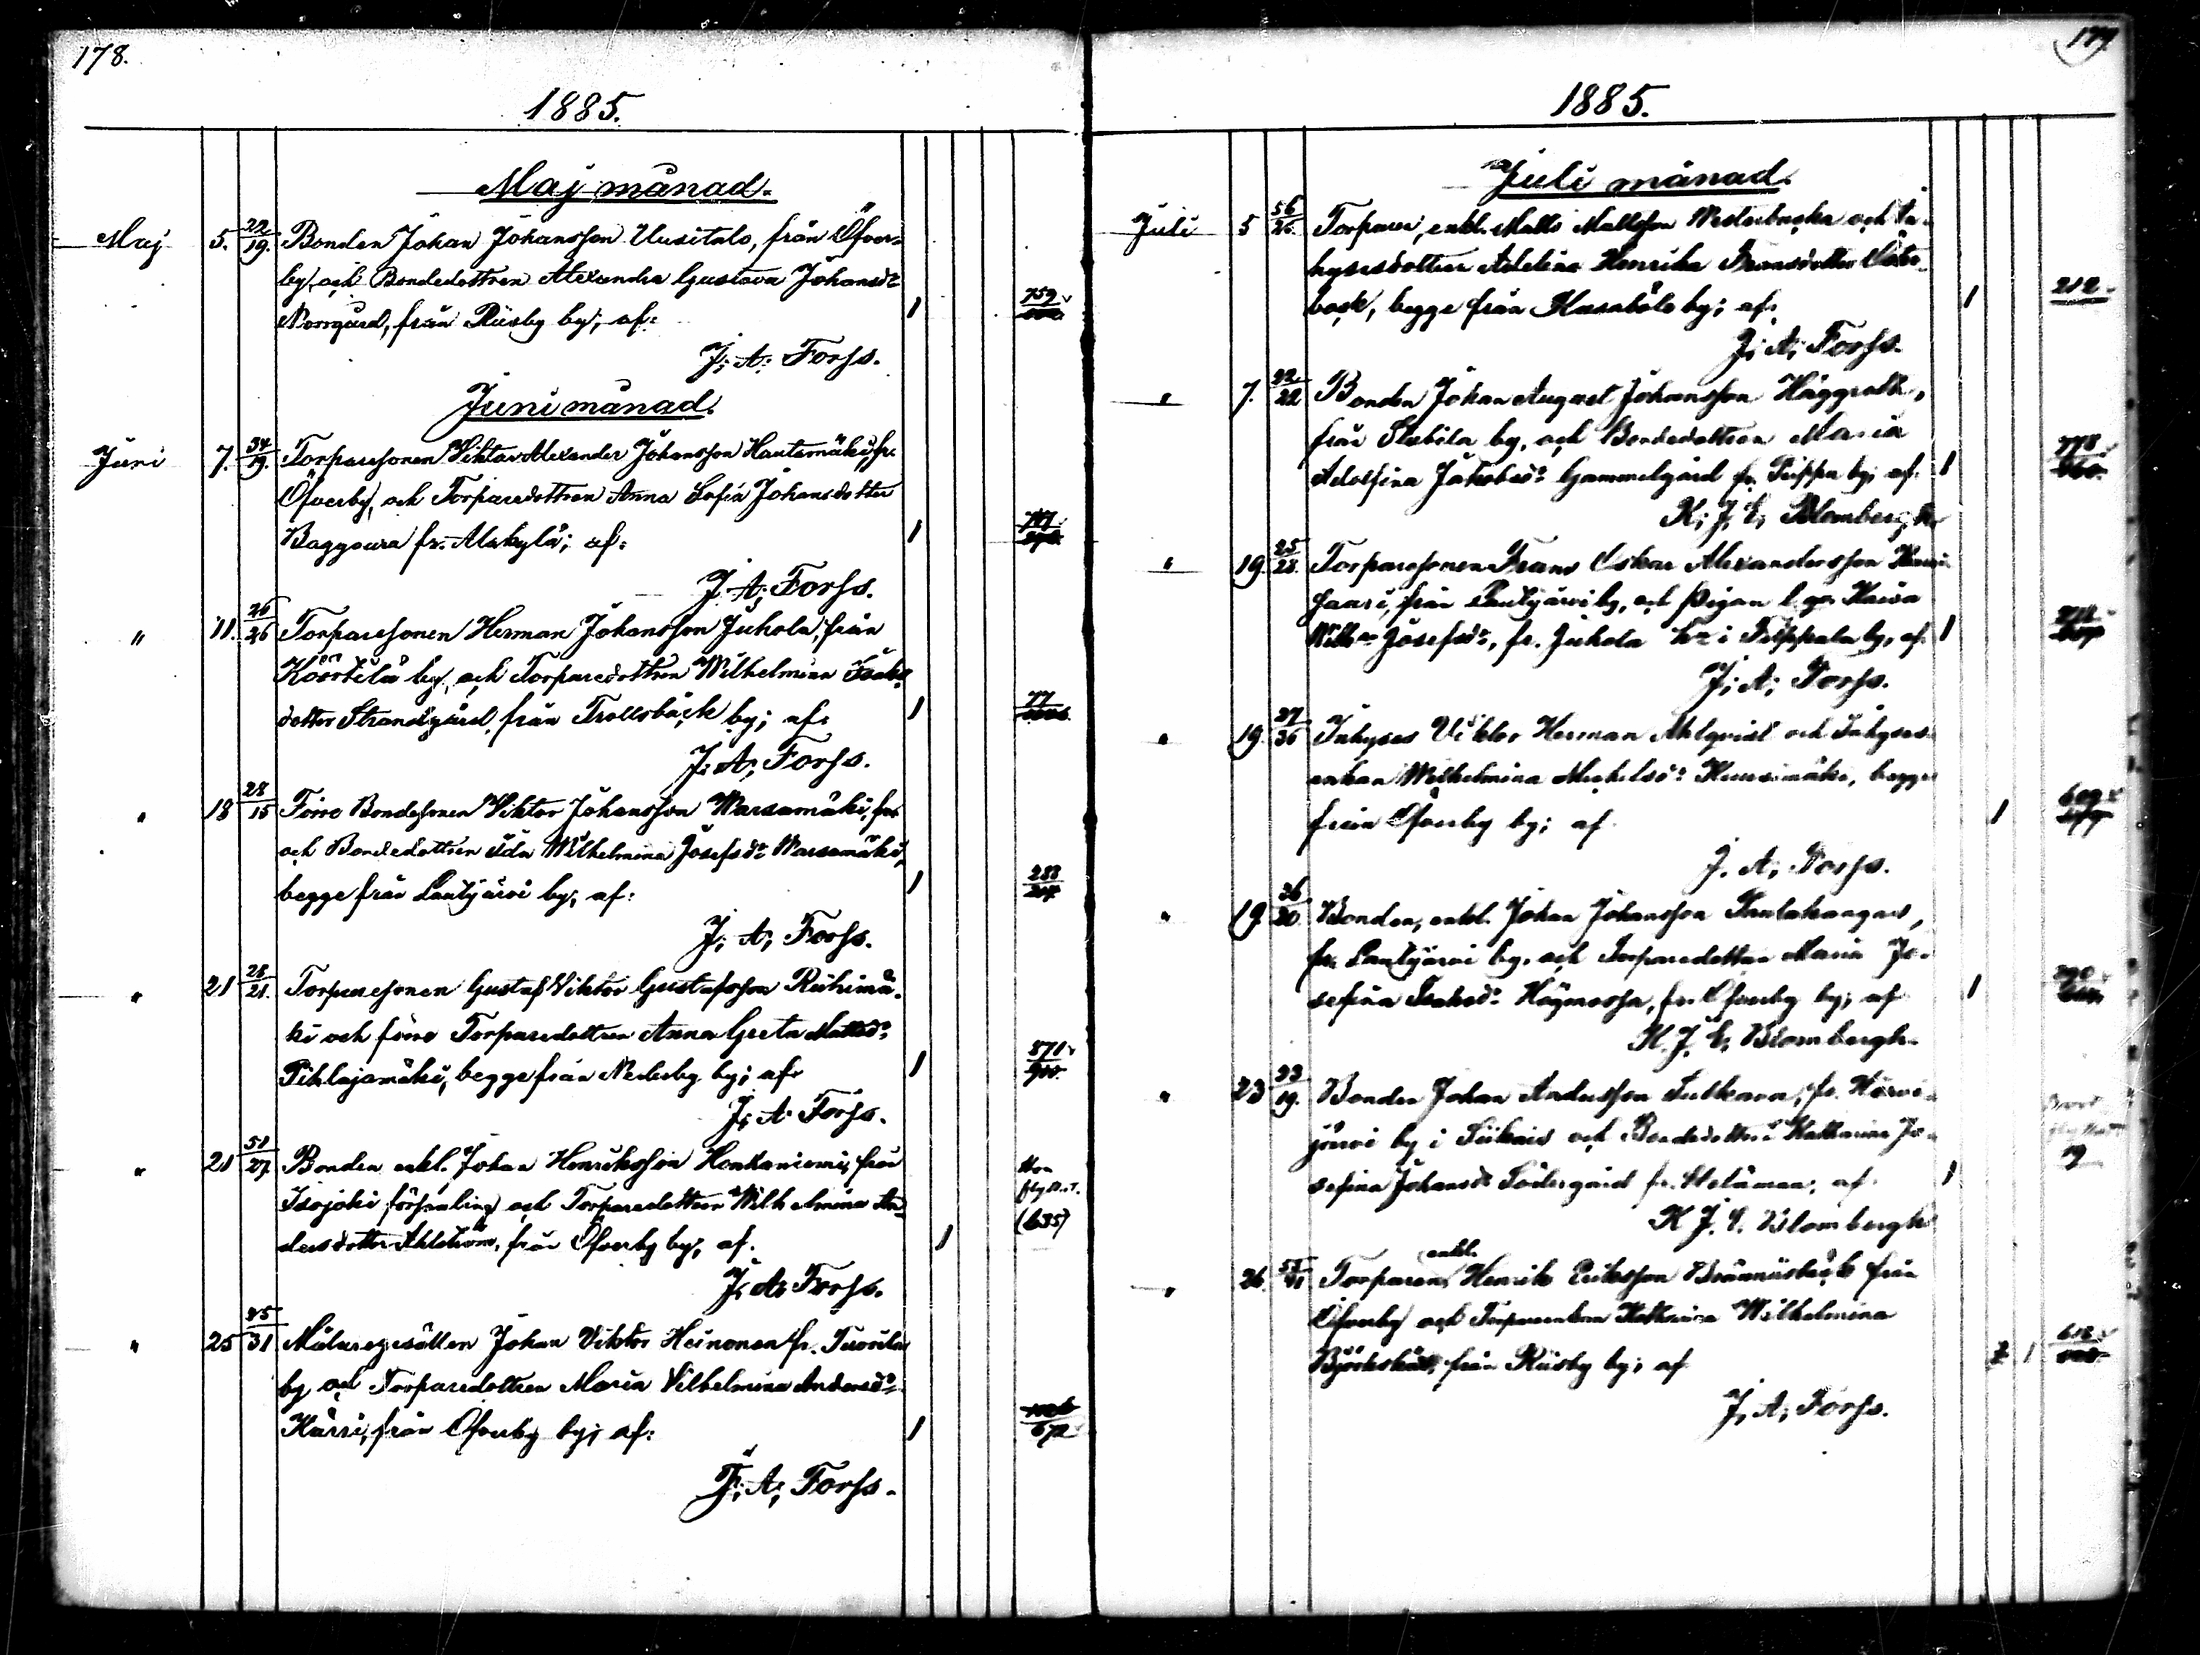 178.
1885.
Maj månad.
Maj 5. 22/19. Bonden Johan Johansson Uusitalo, från Öfver-
by, och Bondedottren Alexandra Gustava Johansdr
Norrgård, från Riisby by; af: 1 759
J. A. Forss.
Juni månad.
Juni 7. 34/19. Torparesonen Viktor Alexander Johansson Hautamäki, fr.
Öfverby, och Torparedottren Anna Sofia Johansdotter
Baggoura fr. Alakylä; af: 1
J. A. Forss.
" 11. 26/26 Torparesonen Herman Johansson Juhola, från
Köörtilä by, och Torparedottren Wilhelmina Isaks-
dotter Strandgård, från Trollsbäck by; af: 1 77
J. A. Forss.
" 18 28/15 Förre Bondesonen Viktor Johansson Warsamäki,
och Bondedottren Ida Wilhelmina Josefsdr Warsamäki,
begge från Lautjärvi by; af: 1 283
J. A. Forss.
" 21 28/21. Torparesonen Gustaf Viktor Gustafsson Riihimä-
ki och förre Torparedottren Anna Greta Mattsdr
Pihlajamäki, begge från Nederby by; af: 1 871
J. A. Forss.
" 21 51/27 Bonden, enkl. Johan Henriksson Honkaniemi, från
Isojoki församling och Torparedottren Wilhelmina An-
dersdotter Ahlström, från Öfverby by; af: 1 (635)
J. A. Forss.
" 25 45/31 Målaregesällen Johan Viktor Heinonen fr. Tuorila
by och Torparedottren Maria Vilhelmina Andersdr
Harri, från Öfverby by; af: 1 672
J. A. Forss.
179
1885.
Juli månad.
Juli 5 56/26. Torparen, enkl. Matts Mattsson Westerbacka och In-
hysesdottren Adelina Henrika Fransdotter Öster-
back, begge från Kasaböle by; af: 1 212
J. A. Forss.
" 7. 22/22 Bonden Johan August Johansson Häggroth,
från Stabila by, och Bondedottren Maria
Adolfina Jakobsdr Gammelgård fr. Trippa by; af: 1 778
K. J. E. Blombergh.
" 19. 25/28. Torparesonen Frans Oskar Alexandersson
från Lautjärvi by, och Pigan Kaisa
Josefsdr, fr. Juhola i Filppula by, af: 1
J. A. Forss.
" 19. 37/36 Inhyses Viktor Herman Ahlqvist och Inhyses-
enkan Wilhelmina Mickelsdr Kuusimäki, begge
från Öfverby by; af: 1
J. A. Forss.
" 19. 36/20 Bonden, enkl. Johan Johansson Rautakangas,
fr. Lautjärvi by, och Torparedottren Maria Jo-
sefina Isaksdr Högmossa, fr. Öfverby by; af: 1
K. J. E. Blombergh.
" 23 33/19. Bonden Johan Andersson fr. Harvi-
järvi by i Siikais och Bondedottren Katharina Jo-
sefina Johansdr Södergård fr. Stelämen; af: 1
K. J. E. Blombergh
" 26. 55/41 Torparen, enkl. Henrik Eriksson Brännästrick från
Öfverby och Torparenkan Katharina Wilhelmina
Björkskär, från Riisby by; af 1
J. A. Forss.